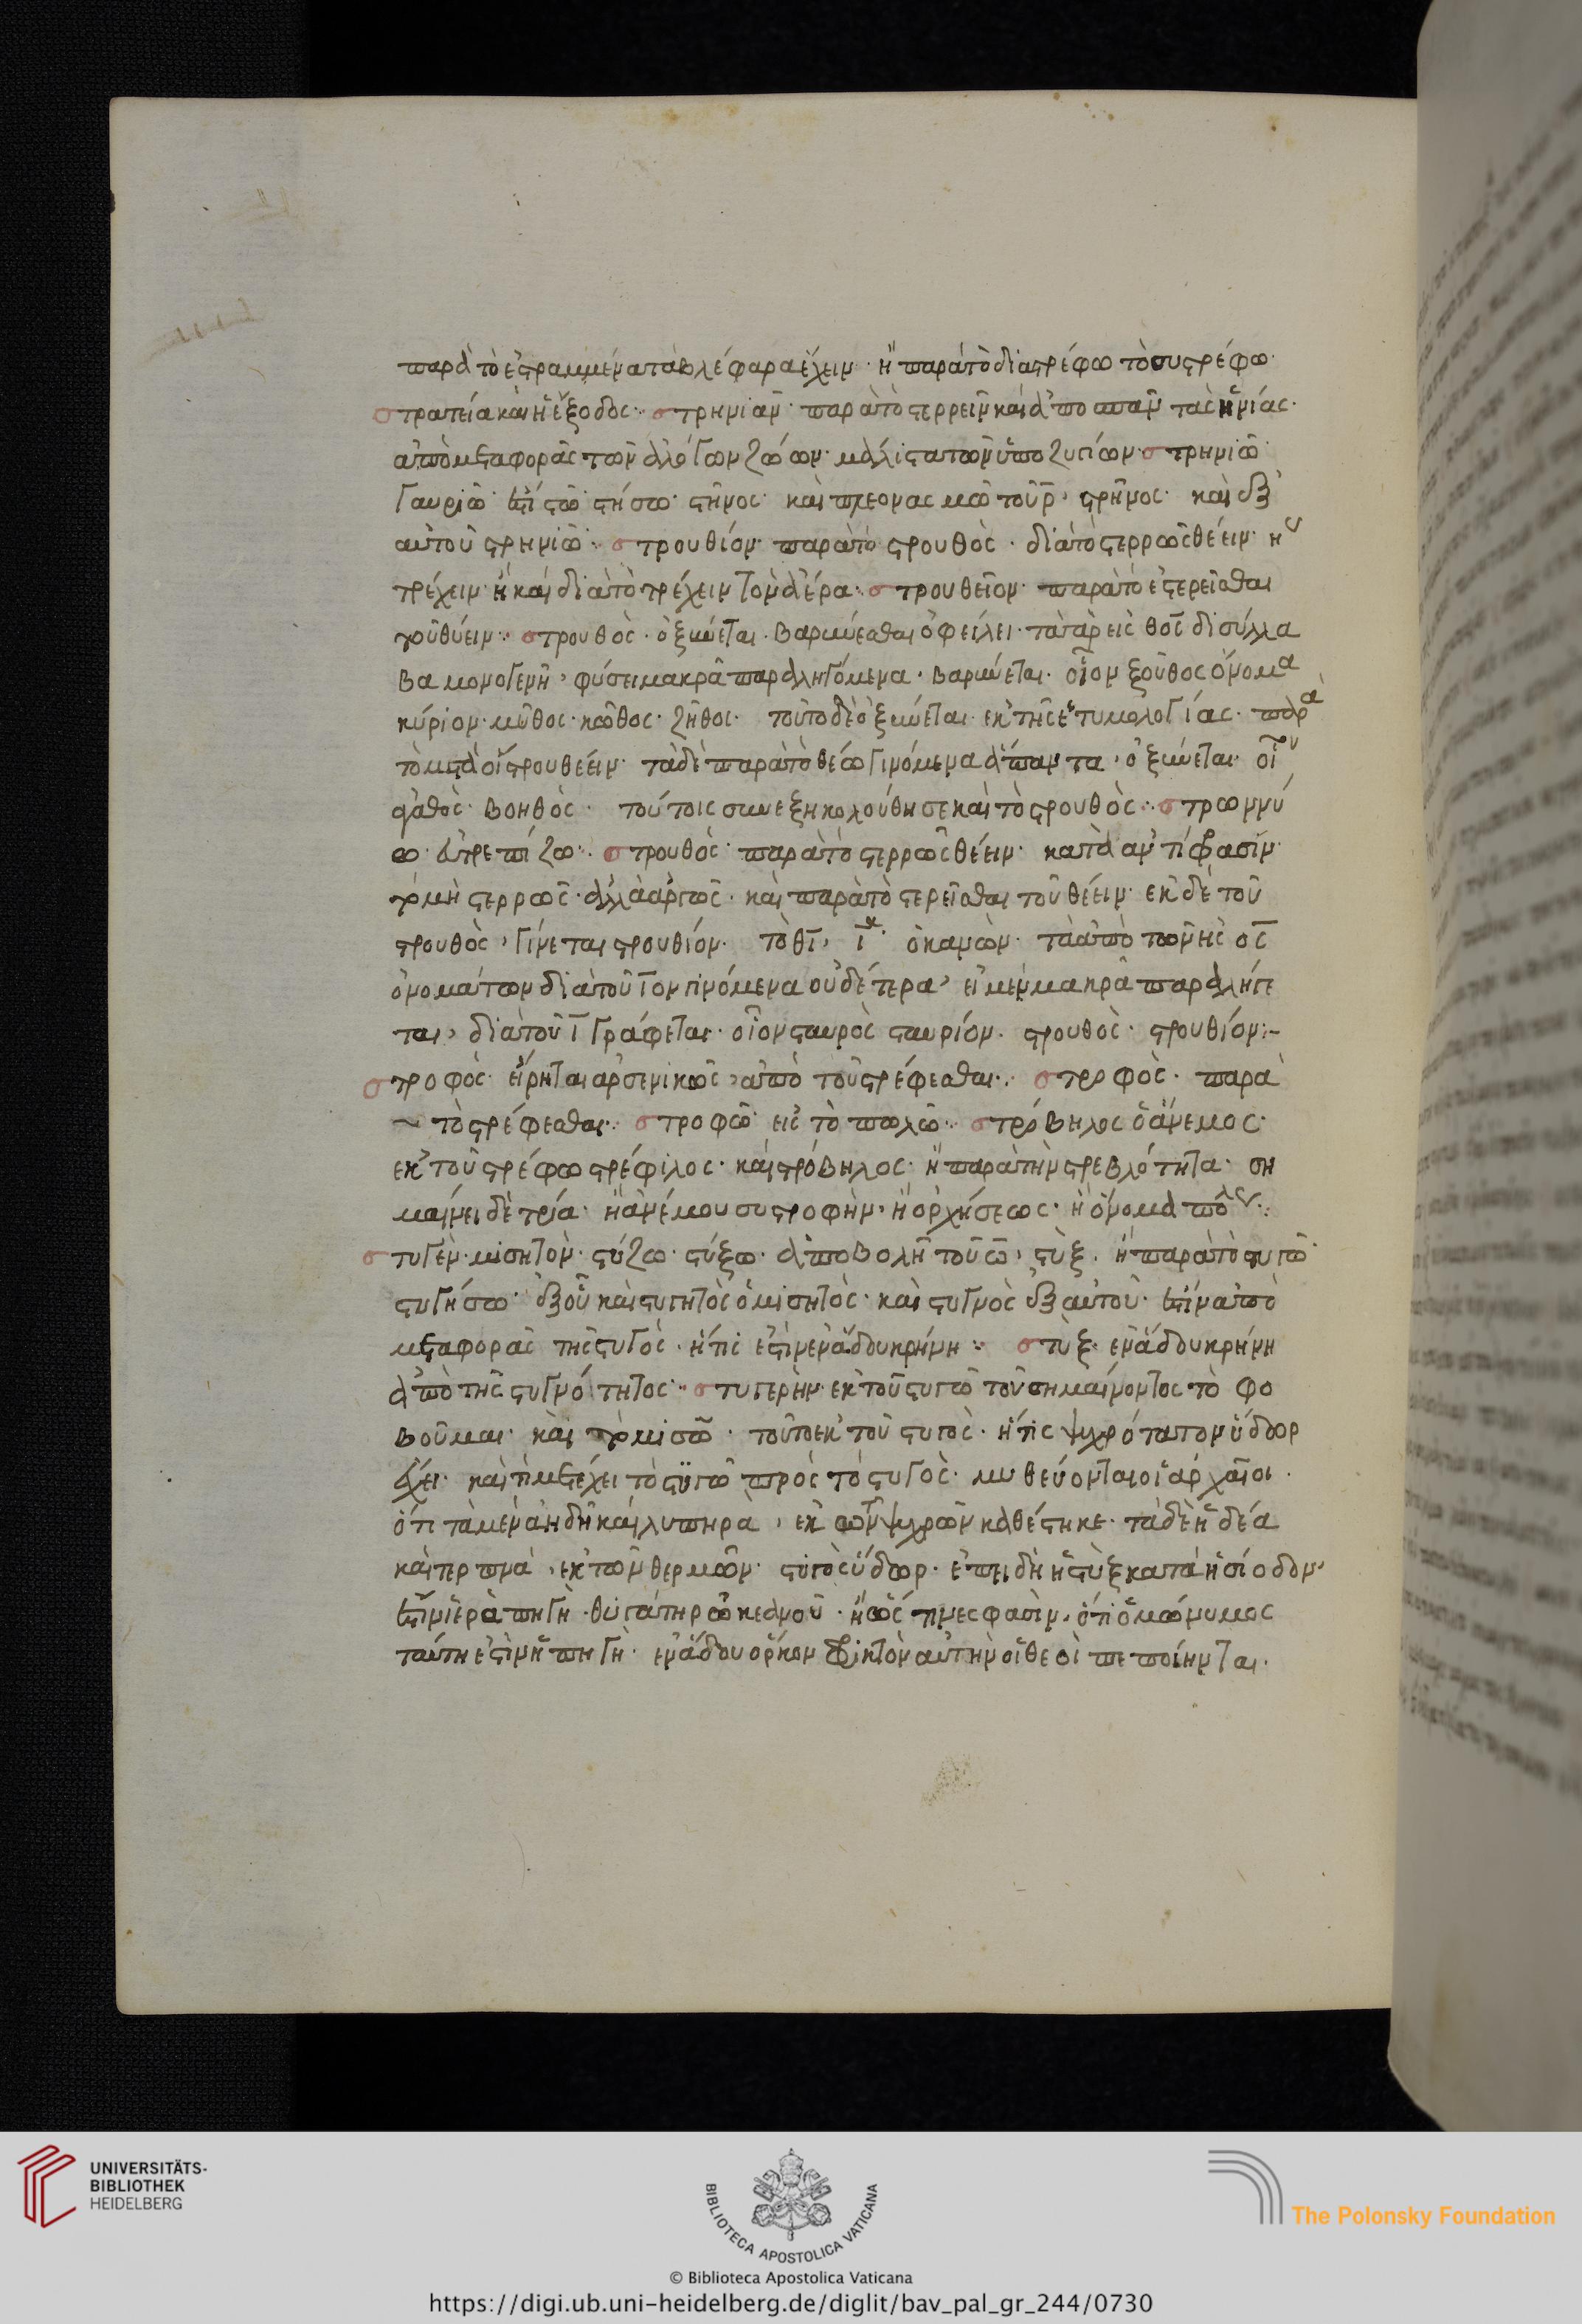 παρὰ τὸ ἐστραμμένα τὰ βλέφαρα ἔχειν· ἢ παρὰ τὸ διαστρέφω τὸ συστρέφω·
στρατεία καὶ ἡ ἔξοδος· στρηνιᾶν· παρὰ τὸ στερρεῖν καὶ ἀποσπᾶν τὰς ἡνίας·
ἀπὸ μεταφορᾶς τῶν ἀλόγων ζώων· μάλιστα τῶν ὑποζυγίων· στρηνιῶ
γαυριῶ· στήσω· στῆνος· καὶ πλεονασμῶ τοῦ ρ, στρῆνος· καὶ ἐξ
αὐτοῦ στρηνιῶ· στρουθίον· παρὰ τὸ στρουθὸς· διὰ τὸ στερρῶς θέειν· ἢ
τρέχειν· ἢ καὶ διὰ τὸ τρέχειν τὸν ἀέρα· στρουθεῖον· παρὰ τὸ ἐστερεῖσθαι
τοῦ θύειν· στρουθὸς· ὀξύνεται· βαρύνεσθαι ὀφείλει· τὰ γὰρ εἰς θος δισύλλα
βα μονογενῆ, φύσει μακρᾶ παραληγόμενα, βαρύνεται· οἷον ξοῦθος ὄνομα
κύριον· μῦθος· κῶθος· ζῆθος· τοῦτο δὲ ὀξύνεται ἐκ τῆς ἐτυμολογίας· παρὰ
τὸ μετὰ οἴστρου θέειν· τὰ δὲ παρὰ τὸ θέω γινόμενα ἅπαντα, ὀξύνεται· οἷον
ἀγαθὸς· βοηθὸς· τούτοις συνεξηκολούθησε καὶ τὸ στρουθὸς· στρωννύ
ω· εὐτρεπίζω· στρουθὸς· παρὰ τὸ στερρῶς θέειν· κατὰ ἀντίφασιν·
τὸ μὴ στερρῶς· ἀλλὰ ἀργῶς· καὶ παρὰ τὸ στερεῖσθαι τοῦ θέειν· ἐκ δὲ τοῦ
στρουθὸς, γίνεται στρουθίον· τὸ θι, ι· ὁ κανὼν· τὰ ἀπὸ τῶν εἰς ος
ὀνομάτων διὰ τοῦ ιον γινόμενα οὐδέτερα, εἰ μὲν μακρᾶ παραλήγε
ται, διὰ τοῦ ι γράφεται· οἷον σταυρὸς σταυρίον· στρουθὸς· στρουθίον:-
στροφὸς· εἴρηται ἀρσενικῶς, ἀπὸ τοῦ στρέφεσθαι· στροφὸς· παρὰ
τὸ στρέφεσθαι· στροφῶ· εἰς τὸ πωλῶ· στρόβηλος ὁ ἄνεμος·
ἐκ τοῦ στρέφω στρέφιλος· καὶ στρόβηλος· ἢ παρὰ τὴν στρεβλότητα· ση
μαίνει δὲ τρία· ἢ ἀνέμου συστροφὴν, ἢ ὀρχήσεως· ἢ ὄνομα πόλεως·
στυγέν· μισητὸν· στύζω· στύξω· ἀποβολῆ τοῦ ω, στὺξ· ἢ παρὰ τὸ στυγῶ
στυγήσω· ἐξ οὗ καὶ στυγητὸς ὁ μισητὸς· καὶ στυγνὸς ἐξ αὐτοῦ· ἀπὸ
μεταφορᾶς τῆς στυγὸς· ἥτις ἐστὶν ἐν ἅδου κρήνη· στὺξ· ἐν ἅδου κρήνη
ἀπὸ τῆς στυγνότητος· στυγερὴν· ἐκ τοῦ στυγῶ τοῦ σημαίνοντος τὸ φο
βοῦμαι· καὶ τὸ μισῶ· τοῦτο ἐκ τοῦ στυγὸς· ἥτις ψυχρότατον ὕδωρ
ἔχει· καὶ τί μετέχει τὸ στυγῶ πρὸς τὸ στυγὸς· μυθεύονται οἱ ἀρχαῖοι·
ὅτι τὰ μὲν ἀηδῆ καὶ λυπηρὰ, ἐκ τῶν ψυχρῶν καθέστηκε· τὰ δὲ ἡδέα
καὶ τερπνὰ, ἐκ τῶν θερμῶν· στυγὸς ὕδωρ· ἐπειδὴ ἡ στὺξ κατὰ ἡσίοδον,
ἱερὰ πηγὴ· θυγάτηρ ὠκεανοῦ· ἢ ὥς τινες φασὶν, ὅτι ὁμώνυμος
ταύτη ἐστὶν ἡ πηγὴ· ἐν ἅδου ὅρκον φρικτὸν αὐτὴν οἱ θεοὶ πεποίηνται·
UNIVERSITÄTS-
BIBLIOTHEK
HEIDELBERG
BIBLIOTECA APOSTOLICA VATICANA
The Polonsky Foundation
© Biblioteca Apostolica Vaticana
https://digi.ub.uni-heidelberg.de/diglit/bav_pal_gr_244/0730